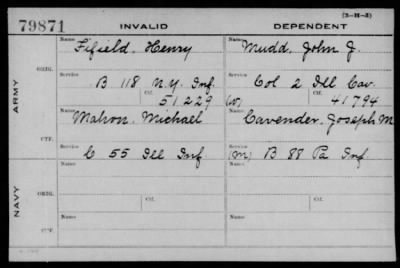 (3-H-3)
79871 INVALID DEPENDENT
ARMY
ORIG.
Name Fifield, Henry
Name Mudd, John J.
Service B 118 N.Y. Inf.
Service Col 2 Ill Cav.
Ctf. 51229
(W) Ctf. 41794
CTF.
Name Mahon, Michael
Name Cavender, Joseph M
Service C 55 Ill Inf
Service (M) B 88 Pa Inf.
NAVY
ORIG.
Ctf.
Ctf.
Name
Name
CTF.
Service
Service
Ctf.
Ctf.
Name
Name